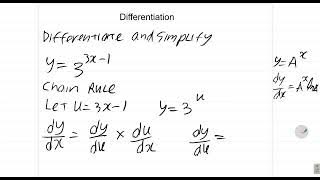 Differentiation
Differentiate and Simplify
y = 3^{3x-1}
Chain Rule
Let U = 3x-1   y = 3^u
dy/dx = dy/du × du/dx   dy/du =
y = A^x
dy/dx = A^x lna